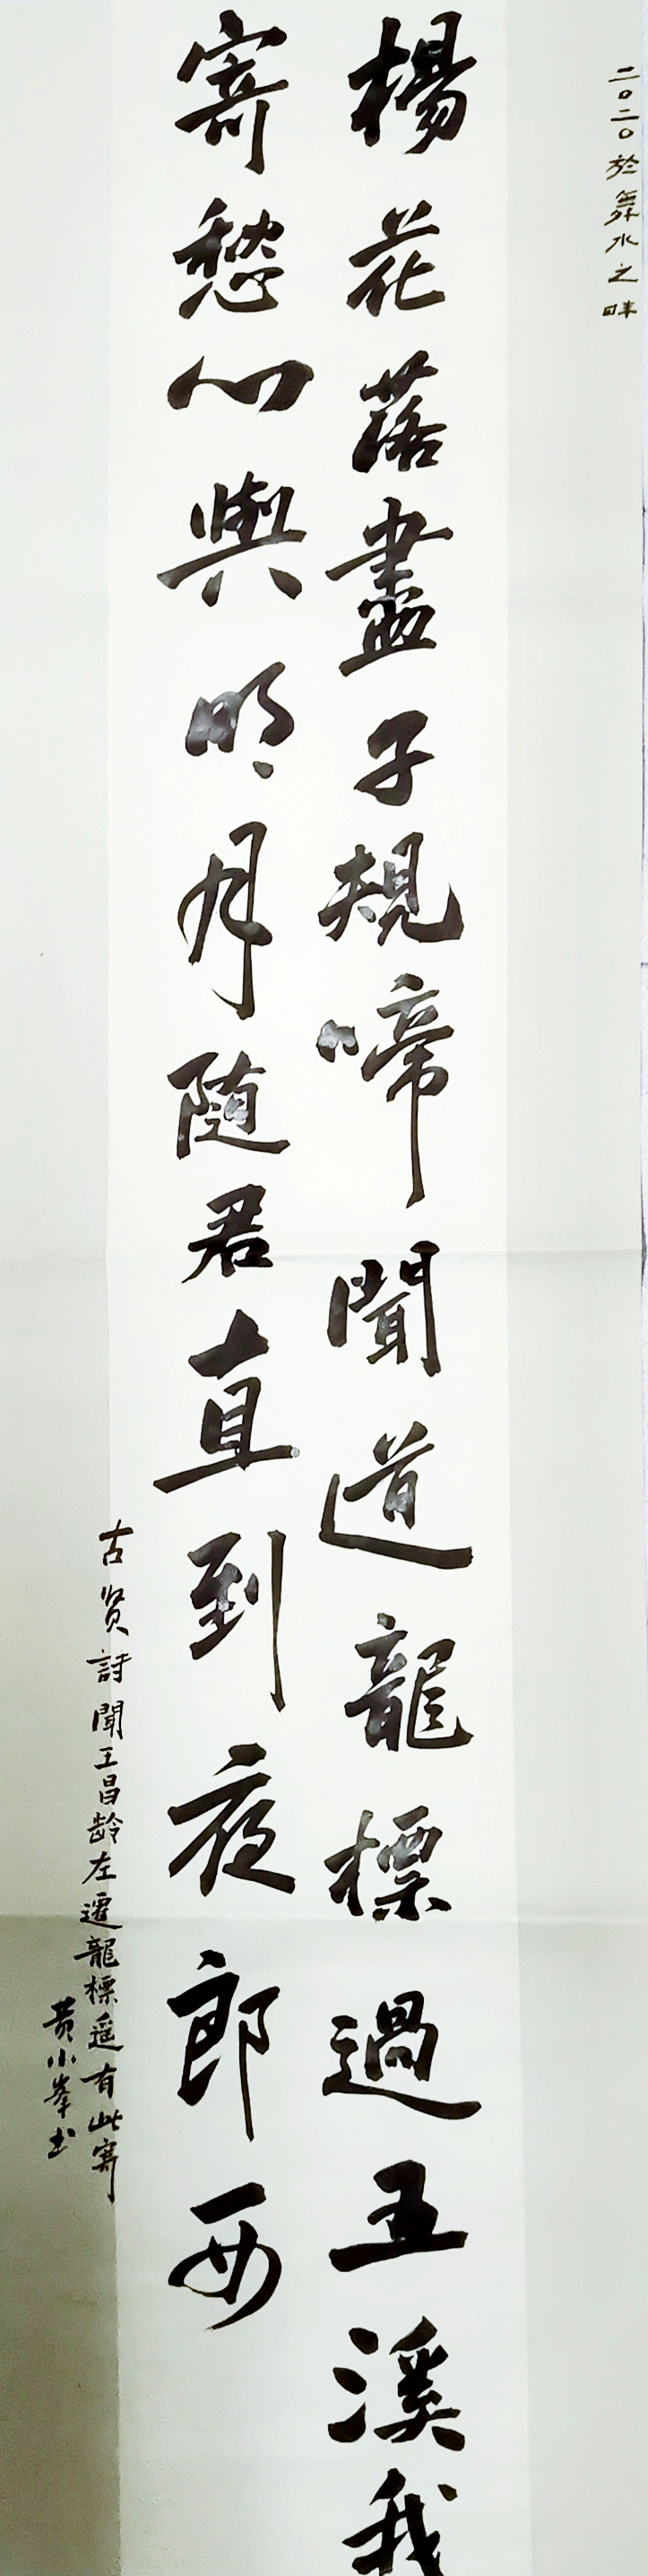 二〇二〇於舞水之畔
楊花落盡子規啼聞道龍標過五溪我
寄愁心與明月随君直到夜郎西
古贤詩聞王昌龄左遷龍標遥有此寄
黄小峯书